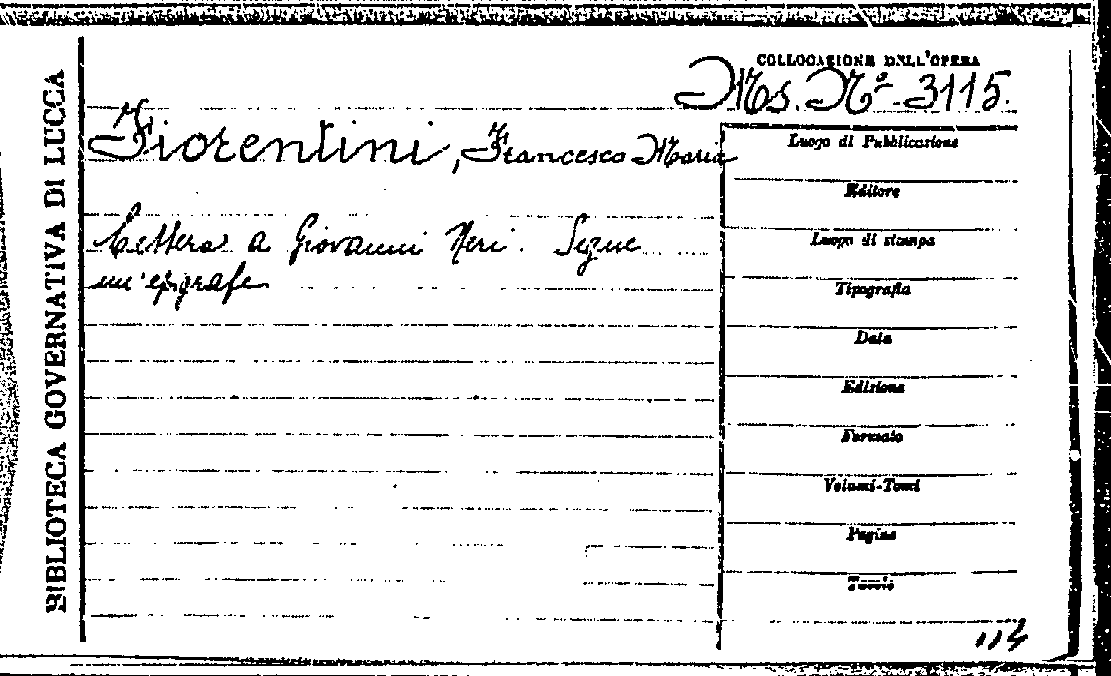 BIBLIOTECA GOVERNATIVA DI LUCCA
COLLOCAZIONE DELL'OPERA
Ms. Nº. 3115.
Fiorentini, Francesco Maria
Lettera a Giovanni Neri. Segue
un'epigrafe
Luogo di Pubblicazione
Editore
Luogo di stampa
Tipografia
Data
Edizione
Formato
Volumi-Tomi
Pagine
Tavole